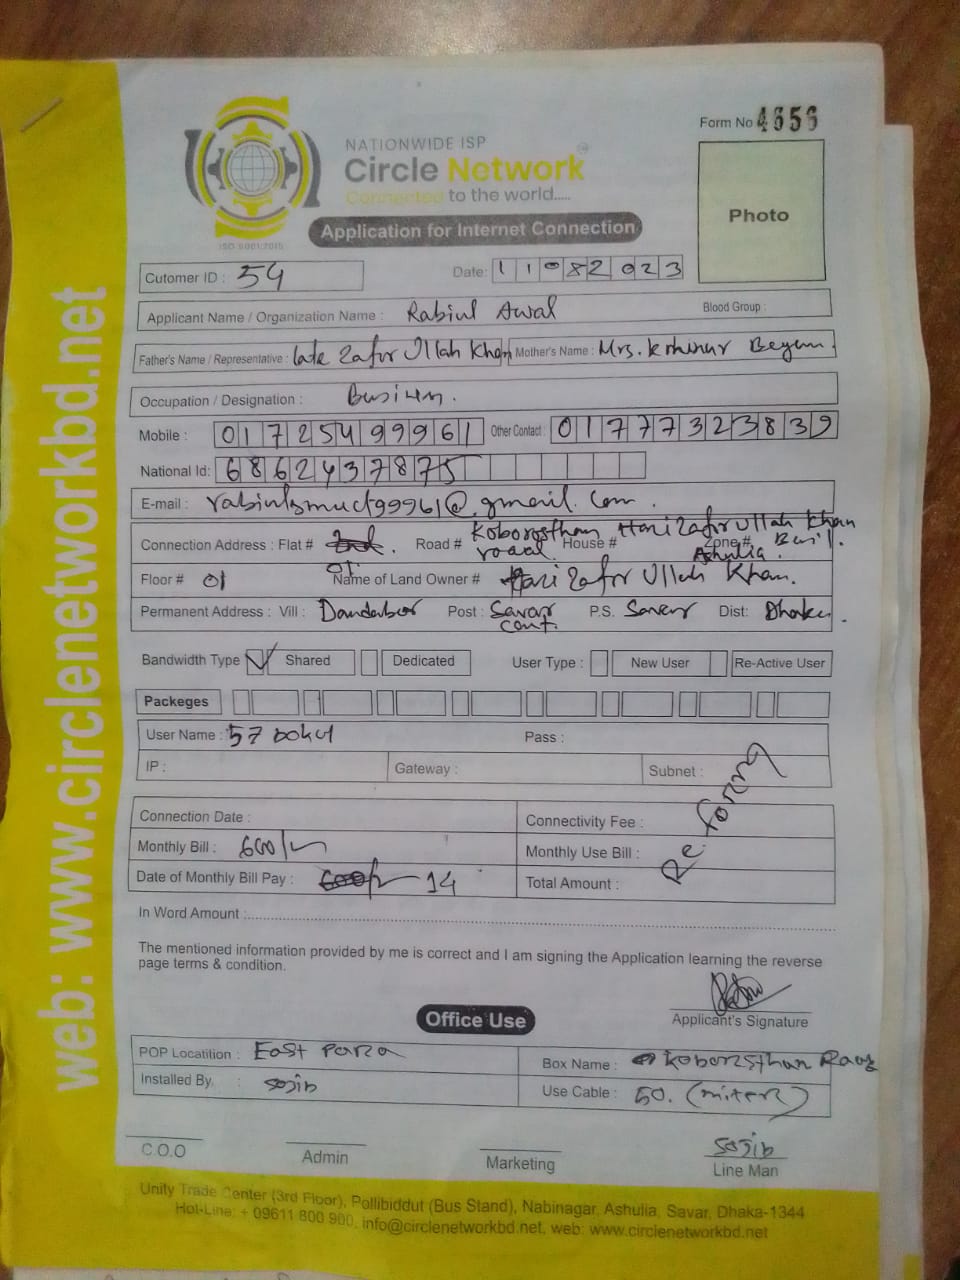 Form No 4656
NATIONWIDE ISP
Circle Network
Connected to the world.....
ISO 9001:2015
Photo
Application for Internet Connection
Cutomer ID : 54
Date: 11082023
Applicant Name / Organization Name : Rabiul Awal Blood Group :
Father's Name / Representative : late Zafor Ullah Khan Mother's Name : Mrs. Kohinur Begum.
Occupation / Designation :
Mobile : 01725499961 Other Contact : 01777323839
National Id: 6862437875
E-mail : @gmail.com.
Connection Address : Flat # 01 Road # Koborosthan road House # Hazi Zafir Ullah Khan Zone # Ashulia.
Floor # 01 Name of Land Owner # Hazi Zafor Ullah Khan.
Permanent Address : Vill : Dandabor Post : Savar cant. P.S. Savar Dist: Dhaka.
Bandwidth Type Shared Dedicated User Type : New User Re-Active User
Packeges
User Name : 57 Pass :
IP : Gateway : Subnet :
Connection Date : Connectivity Fee :
Monthly Bill : 600/- Monthly Use Bill :
Date of Monthly Bill Pay : 14 Total Amount :
Re.
In Word Amount :
The mentioned information provided by me is correct and I am signing the Application learning the reverse
page terms & condition.
Applicant's Signature
Office Use
POP Locatition : East Para Box Name : Koborsthan
Installed By. : Sojib Use Cable : 50. (miter)
Sojib
C.O.O Admin Marketing Line Man
Unity Trade Center (3rd Floor), Pollibiddut (Bus Stand), Nabinagar, Ashulia, Savar, Dhaka-1344
Hot-Line: + 09611 800 900, info@circlenetworkbd.net, web: www.circlenetworkbd.net
web: www.circlenetworkbd.net